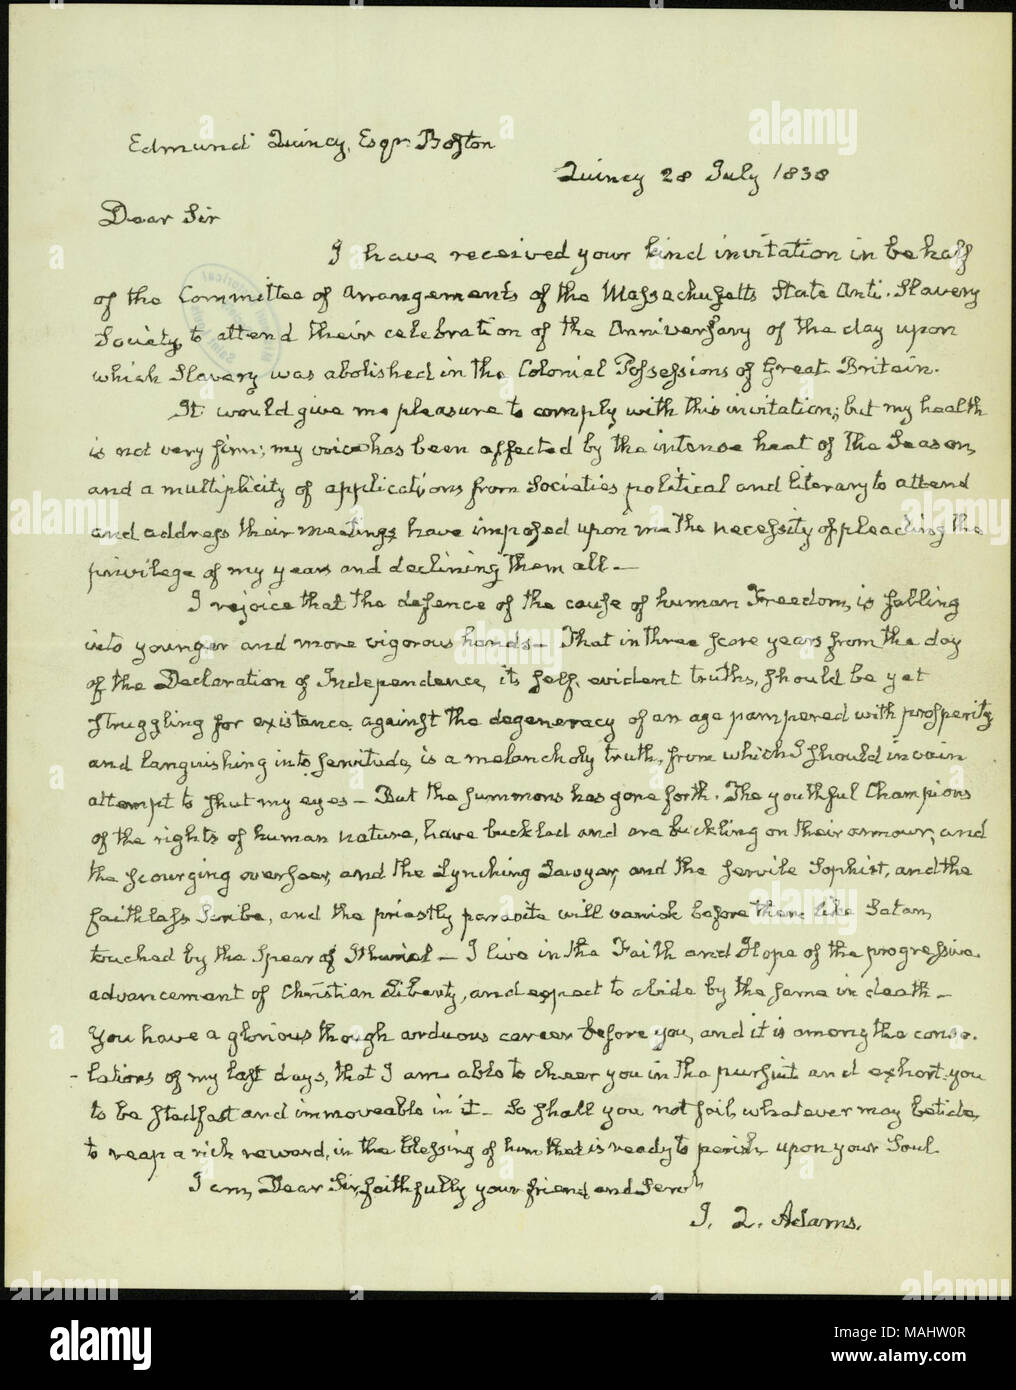 Edmund Quincy, Esqr. Boston
Quincy 28 July 1838
Dear Sir
I have received your kind invitation in behalf
of the Committee of Arrangements of the Massachusetts State Anti-Slavery
Society, to attend their celebration of the Anniversary of the day upon
which Slavery was abolished in the Colonial Possessions of Great Britain.
It would give me pleasure to comply with this invitation; but my health
is not very firm; my voice has been affected by the intense heat of the Season,
and a multiplicity of applications from Societies political and literary to attend
and address their meetings have imposed upon me the necessity of pleading the
privilege of my years and declining them all—
I rejoice that the defence of the cause of human Freedom, is falling
into younger and more vigorous hands— That in three score years from the day
of the Declaration of Independence, its self-evident truths, should be yet
struggling for existence against the degeneracy of an age pampered with prosperity
and languishing into servitude, is a melancholy truth, from which I should in vain
attempt to shut my eyes— But the summons has gone forth. The youthful Champions
of the rights of human nature, have buckled and are buckling on their armour, and
the scourging overseer, and the Lynching Lawyer, and the servile Sophist, and the
faithless Scribe, and the priestly parasite will vanish before them like Satan,
touched by the Spear of Ithuriel— I live in the Faith and Hope of the progressive
advancement of Christian Liberty, and expect to abide by the same in death—
You have a glorious though arduous career before you, and it is among the conso-
-lations of my last days, that I am able to cheer you in the pursuit and exhort you
to be stedfast and immoveable in it— So shall you not fail, whatever may betide,
to reap a rich reward, in the blessing of him that is ready to perish upon your Soul.
I am, Dear Sir, faithfully your friend and Servt
J. Q. Adams.
alamy
Image ID: MAHW0R
www.alamy.com